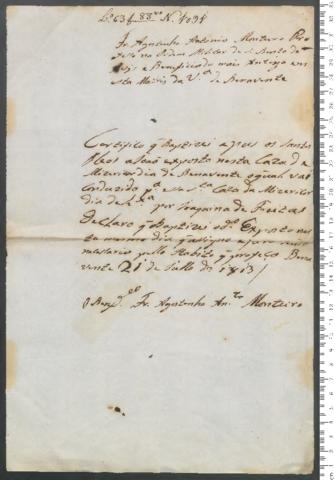 Lº 634 88vº N. 1094
Fr Agostinho Antonio Monteiro Pro
fesso na Ordem Militar de S. Bento de
Aviz e Beneficiado mais Antigo em
esta Matris da Vª de Benavente
Certifico q Baptizei e puz os Santos
Oleos a João exposto nesta Caza da
Mizericordia de Benavente o qual vai
conduzido pª a Sta Caza da Mizericor
dia de Lxª por Joaquina de Freitas
declaro q Baptizei o dº Exposto nes
te mesmo dia q asigno e juro sendo
nesesario pello Habito q professo Bena
vente 21 de Julho de 1813
O Benfdº Fr. Agostinho Anto Monteiro